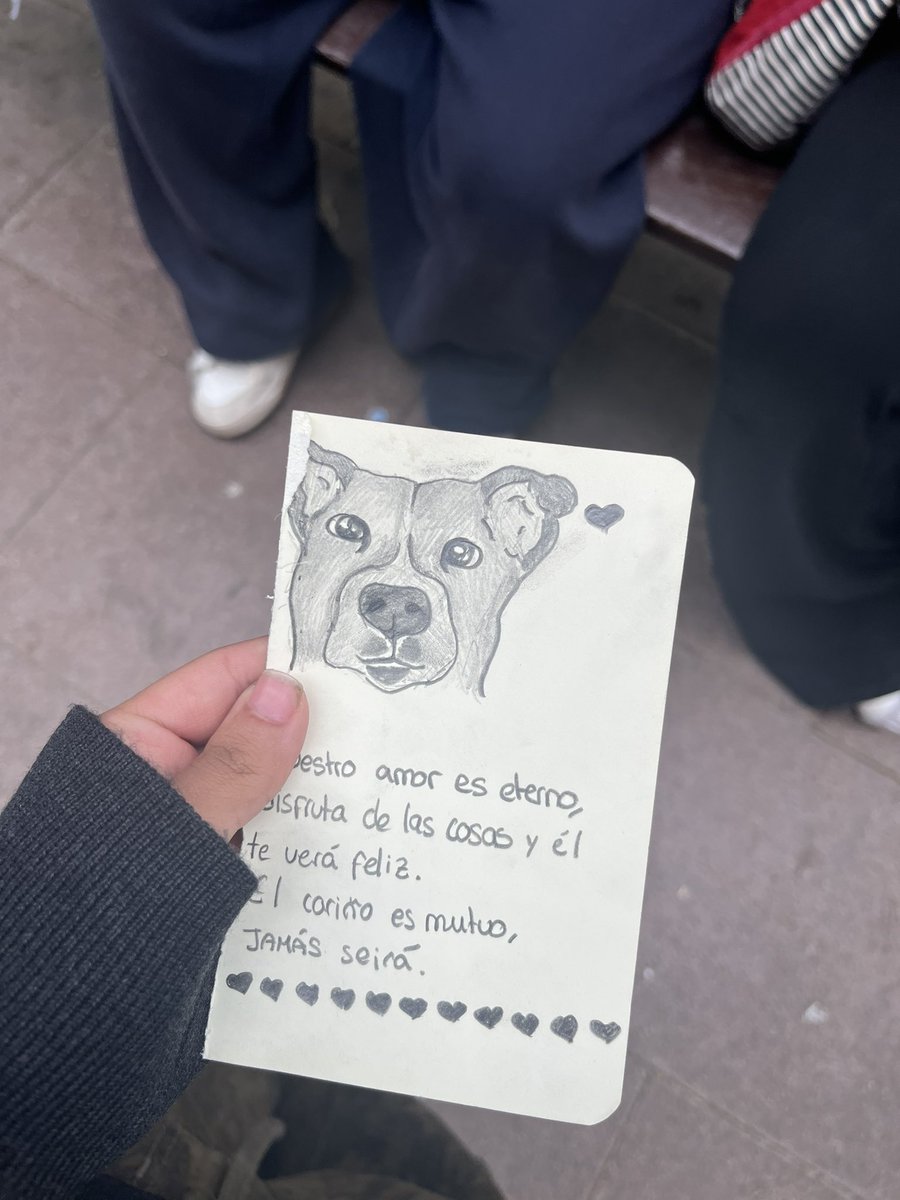 uestro amor es eterno,
disfruta de las cosas y él
te verá feliz.
El cariño es mutuo,
JAMÁS seirá.